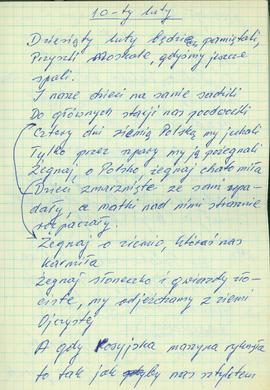 10-ty luty
Dziesiąty luty będziem pamiętali,
Przyszli Moskale gdyśmy jeszcze
spali.
I nasze dzieci na sanie sadzili
Do głównych stacji nas podwozili
Cztery dni ziemią Polską my jechali
Tylko przez szpary my ją pożegnali
Żegnaj, o Polsko, żegnaj chato miła
Dzieci zmarznięte ze sań wpa-
dały, a matki nad nimi strasznie
rozpaczały.
Żegnaj o ziemio, któraś nas
karmiła
Żegnaj słoneczko i gwiazdy zło-
ciste, my odjeżdżamy z ziemi
Ojczystej
A gdy Rosyjska maszyna ryknęła
to tak jakby nas sztyletem